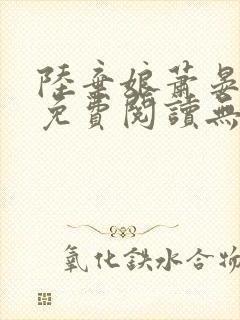 陸棄娘蕭晏
免費閱讀無
氧化鉄水合物